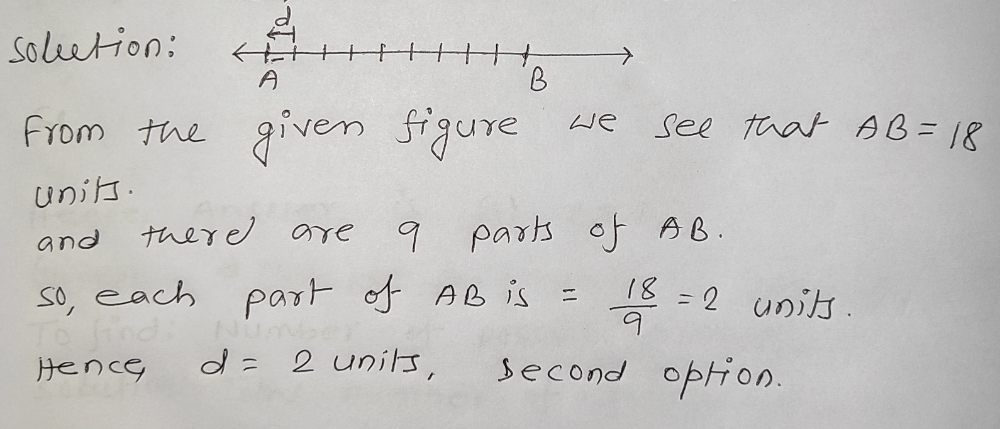 d
Solution:
A
B
From the given figure we see that AB = 18
units.
and there are 9 parts of AB.
so, each part of AB is = 18/9 = 2 units.
Hence, d = 2 units, second option.